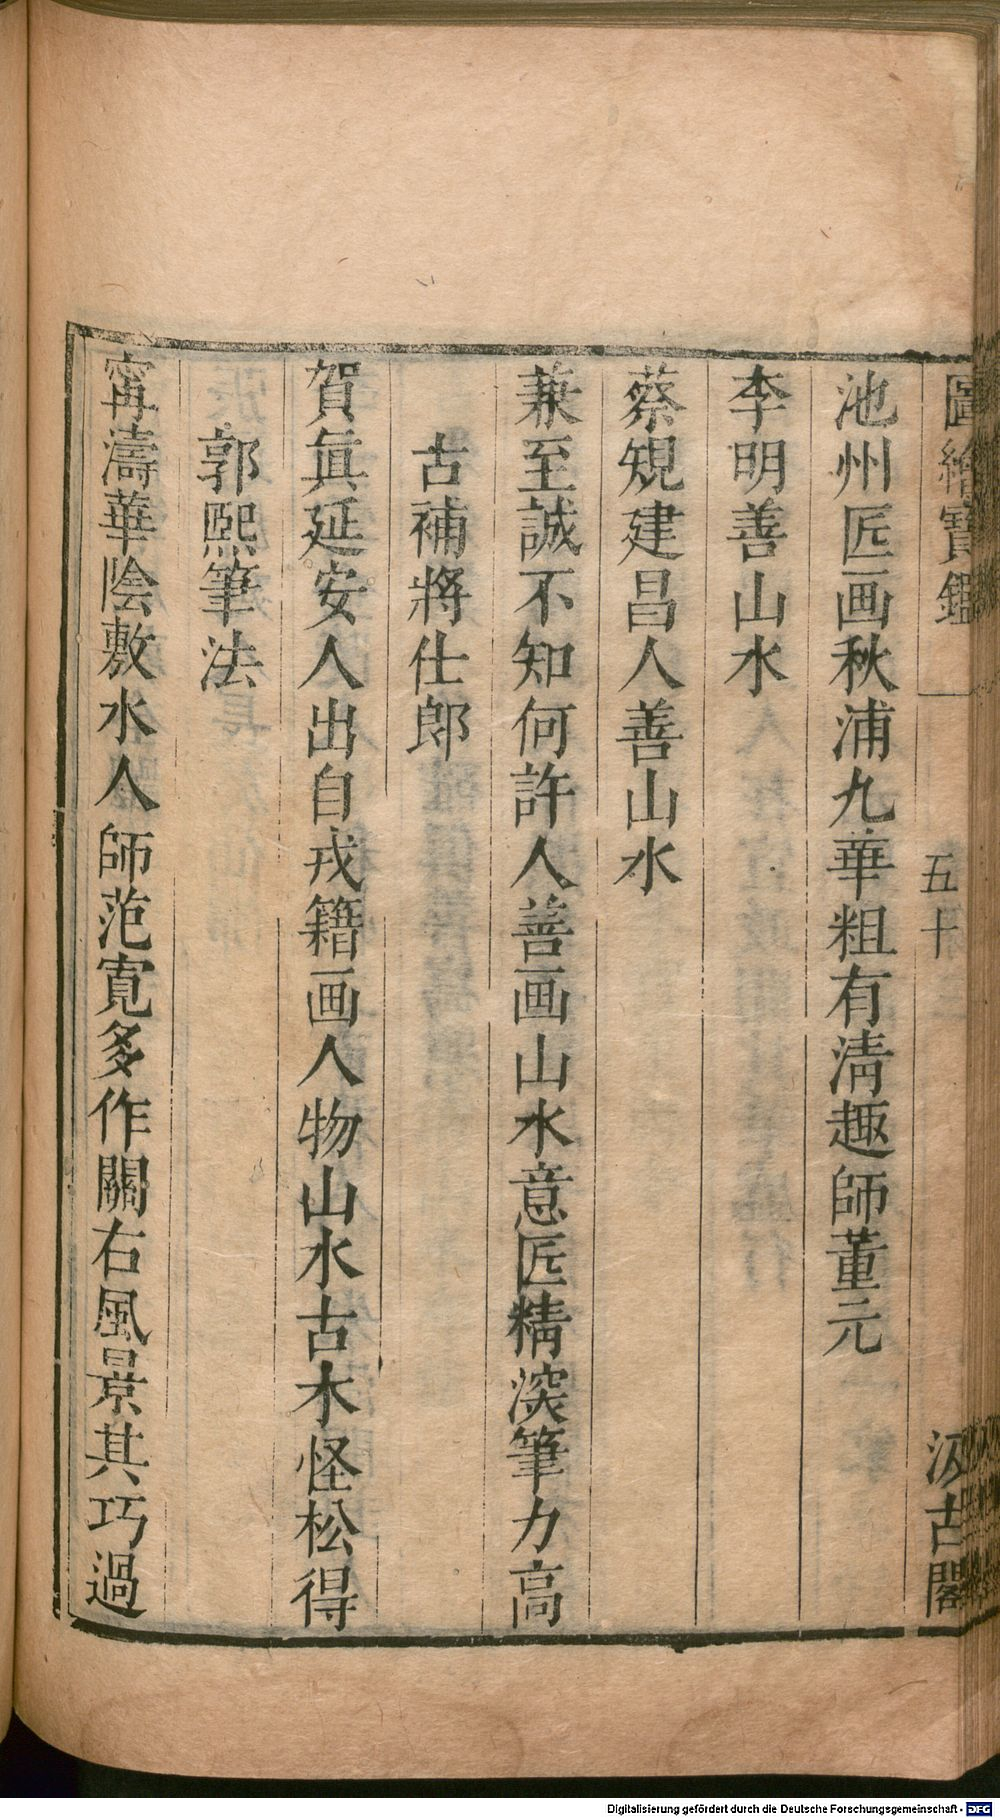 圖繪寶鑑 五十 汲古閣
池州匠画秋浦九華粗有淸趣師董元
李明善山水
蔡規建昌人善山水
兼至誠不知何許人善画山水意匠精深筆力高
古補將仕郎
賀眞延安人出自戎籍画人物山水古木怪松得
郭熙筆法
甯濤華陰敷水人師范寬多作關右風景其巧過
Digitalisierung gefördert durch die Deutsche Forschungsgemeinschaft - DFG